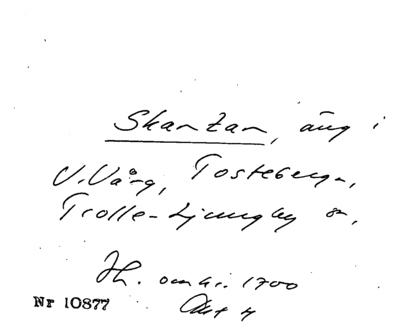 Skanzan, äng i
V. Vång, Tosteberga,
Trolle-Ljungby sn,
Hh. omkr. 1700
Akt 4
Nr 10877